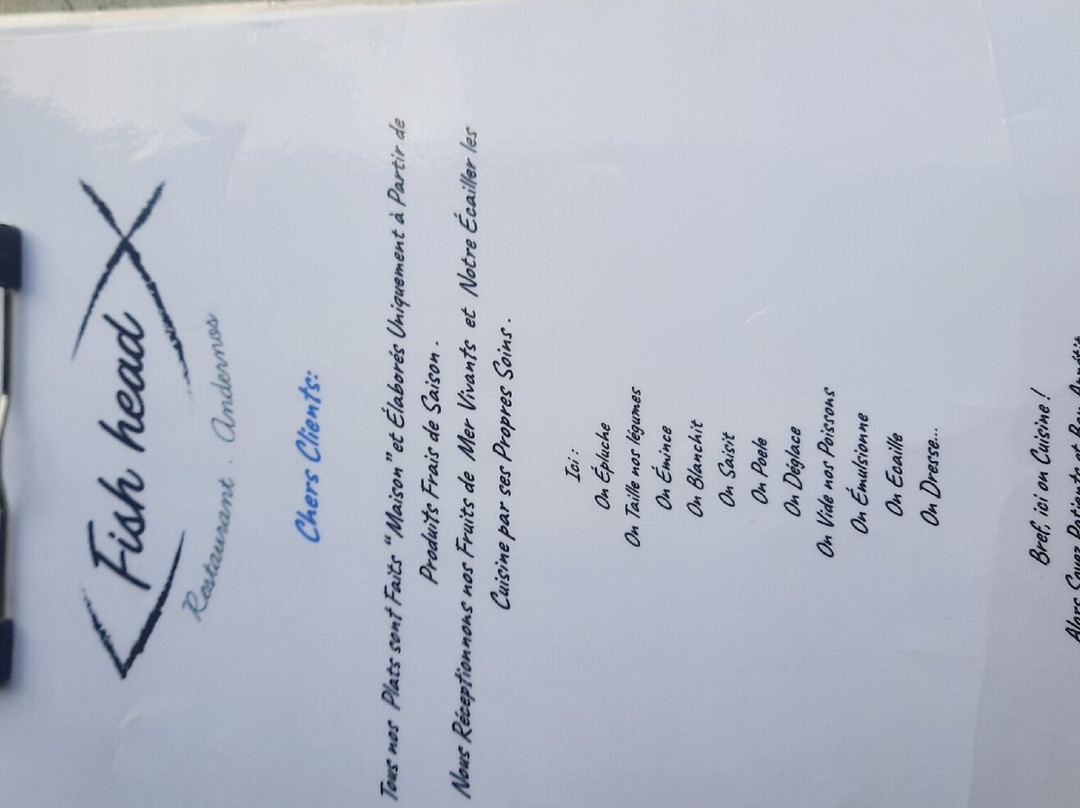 Fish head
Restaurant . Andernos
Chers Clients:
Tous nos Plats sont Faits "Maison" et Élaborés Uniquement à Partir de
Produits Frais de Saison.
Nous Réceptionnons nos Fruits de Mer Vivants et Notre Écailler les
Cuisine par ses Propres Soins.
Ici:
On Épluche
On Taille nos légumes
On Émince
On Blanchit
On Saisit
On Poele
On Déglace
On Vide nos Poissons
On Émulsionne
On Ecaille
On Dresse...
Bref, ici on Cuisine!
Alors Soyez Patients et Bon